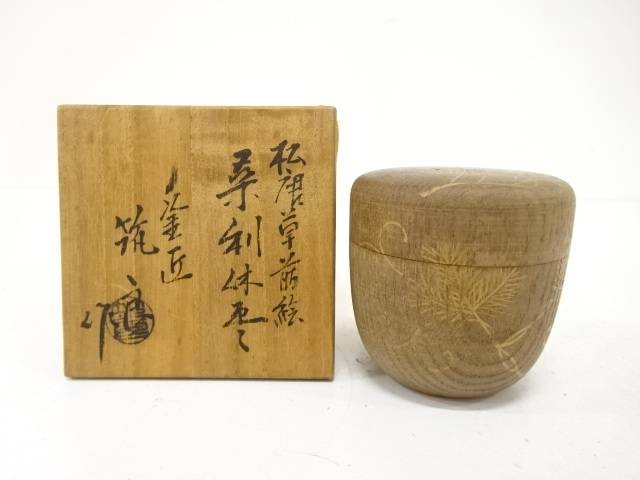 松唐草蒔絵
桑利休棗
塗匠
筑
作